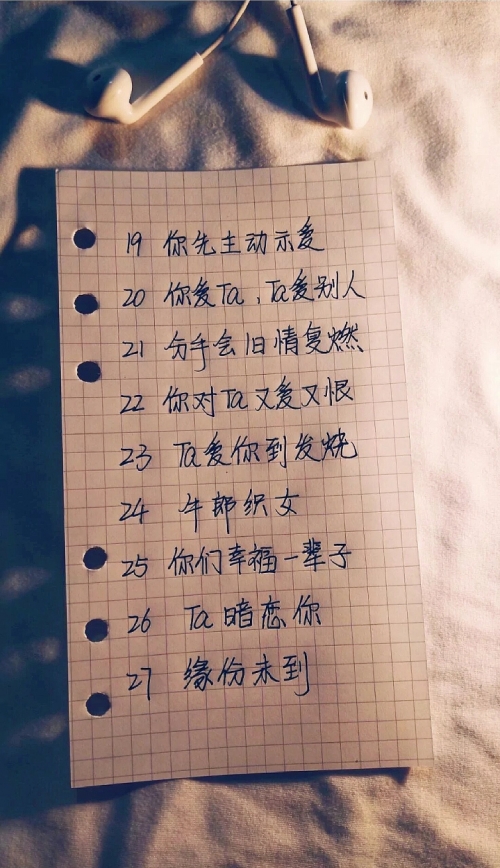 19 你先主动示爱
20 你爱Ta、Ta爱别人
21 分手会旧情复燃
22 你对Ta又爱又恨
23 Ta爱你到发烧
24 牛郎织女
25 你们幸福一辈子
26 Ta暗恋你
27 缘份未到